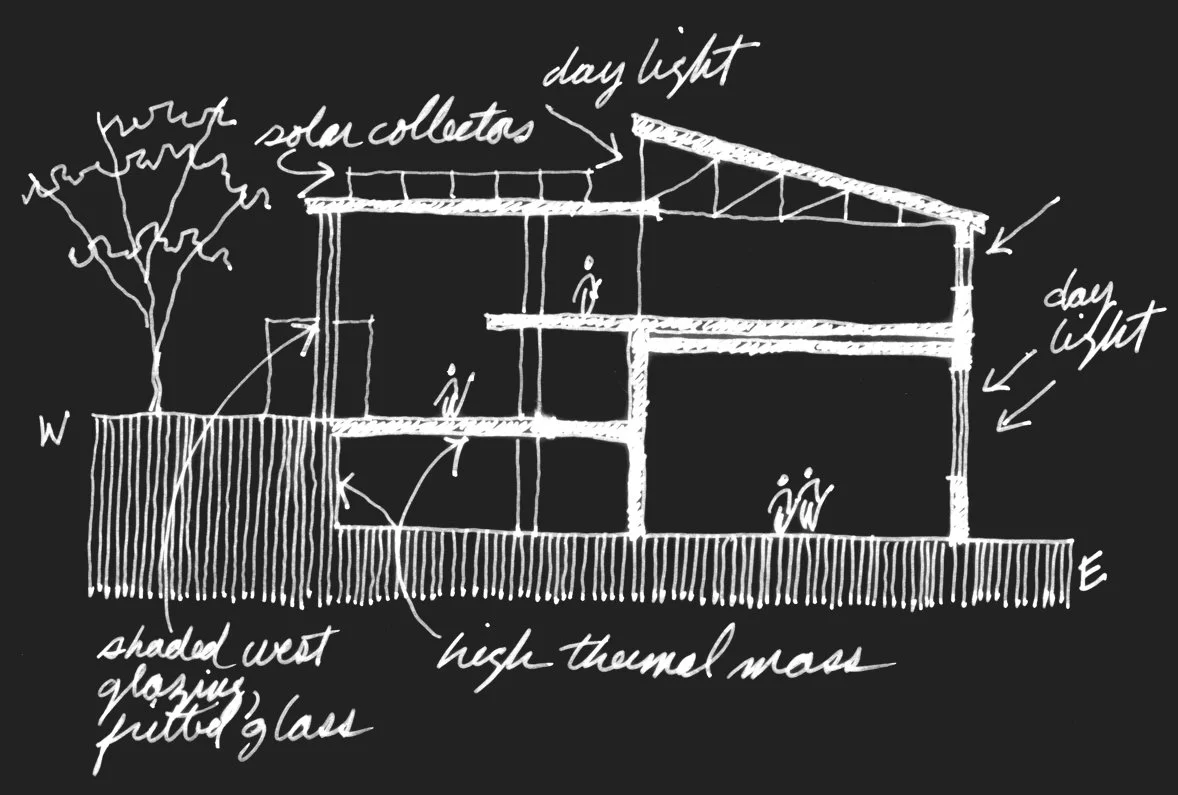 day light
solar collectors
day
light
W
E
shaded west
glazing,
fritted glass
high thermal mass